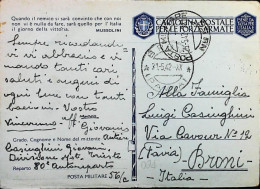 Quando il nemico si sarà convinto che con noi
non vi è nulla da fare, sarà quello per l'Italia
il giorno della vittoria.
MUSSOLINI
Sempre ricordandovi
vi abbraccio e vi
mando tanti cari
saluti e auguri di
ogni bene con tanti
bacioni. Vostro
Vincenzo
Giovanni
Grado, Cognome e Nome del mittente
Casinghini Giovanni
Divisione Trieste
Reparto 80° Autoreparto
POSTA MILITARE 56/
CARTOLINA POSTALE
PER LE FORZE ARMATE
21.5.42
Alla Famiglia
Luigi Casinghini
Via Cavour N° 12
(Pavia) Broni
Italia